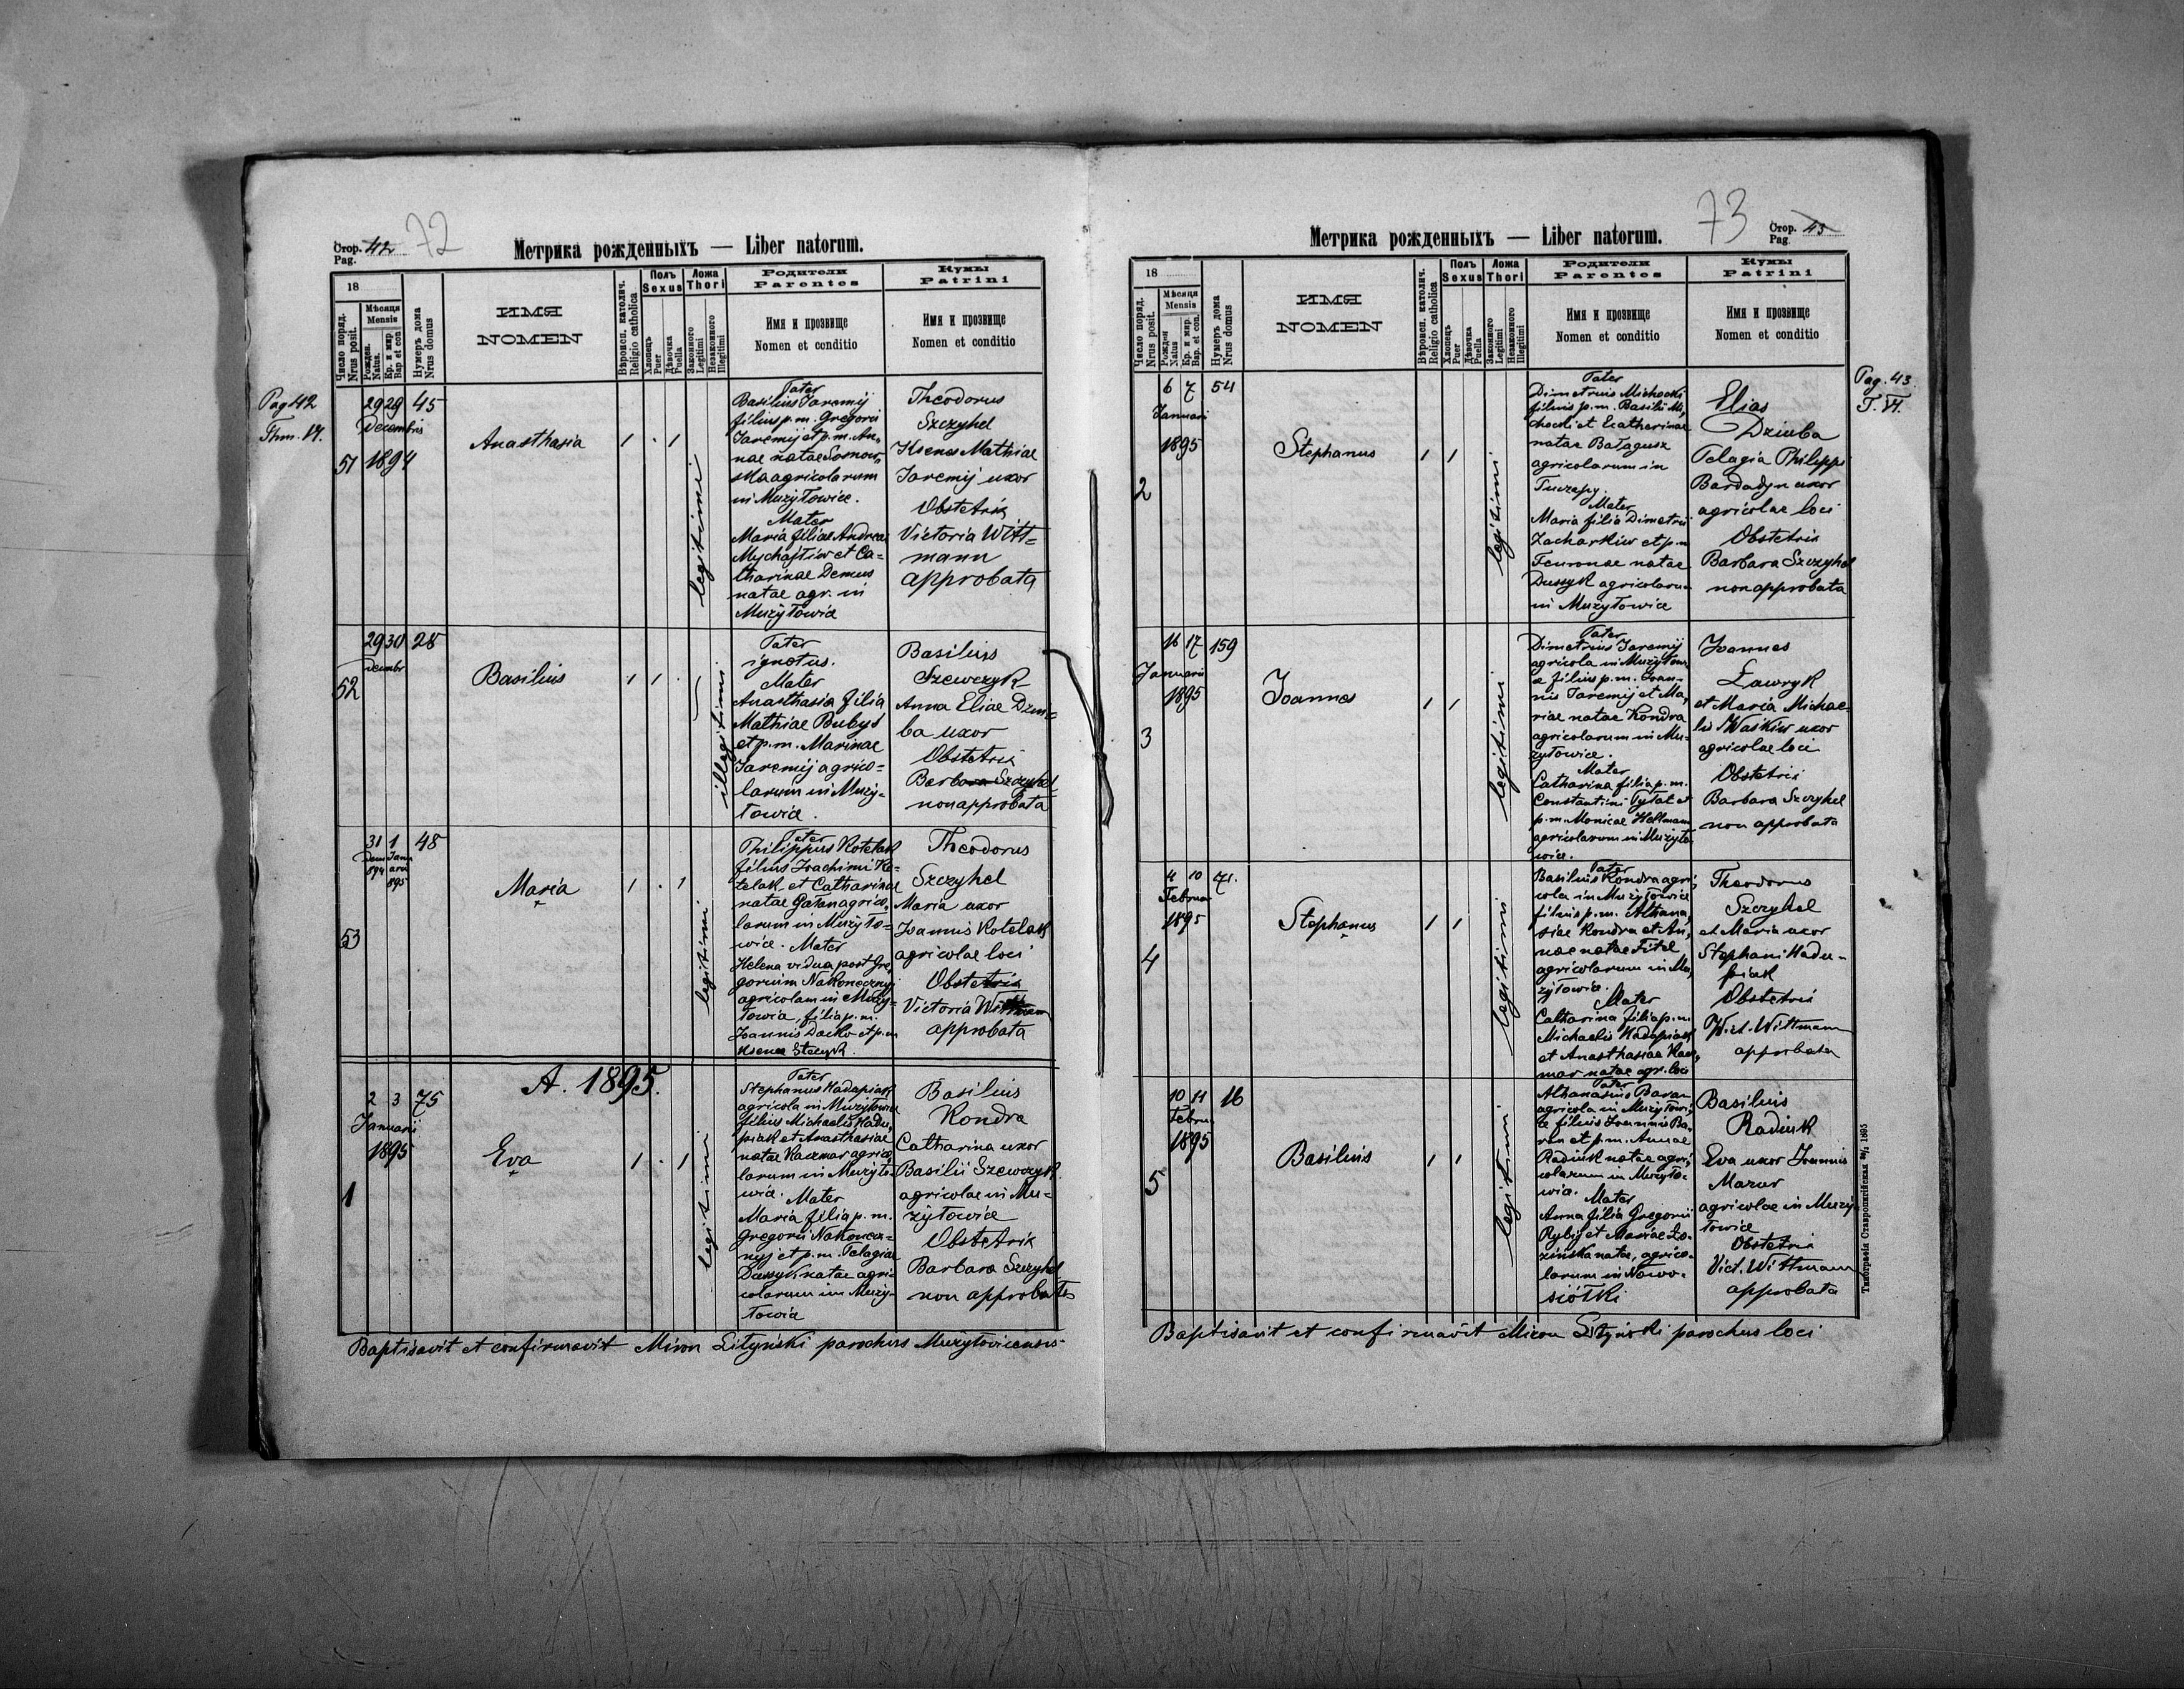 Стор. 42 72
Pag.
Метрика рожденныхъ — Liber natorum.
18
Число поряд.
Nrus posit.
Мѣсяця
Mensis
Рожден.
Natus.
Кр. и мир.
Bap et con
Нумеръ дома
Nrus domus
ИМЯ
NOMEN
Вѣроисп. католич.
Religio catholica
Полъ
Sexus
Хлопець
Puer
Дѣвочка
Puella
Ложа
Thori
Законного
Legitimi
Незаконного
Illegitimi
Родители
Parentes
Имя и прозвище
Nomen et conditio
Кумы
Patrini
Имя и прозвище
Nomen et conditio
Pag 42
Thm. VI.
51
29 29 45
Decembris
1894
Anasthasia
legitimi
Pater
Basilius Jaremij
filius p. m. Gregorii
Jaremij et p. m. An,
nae natae Sosnow,
ska agricolarum
in Mużyłowice.
Mater
Maria filiae Andreae
Mychajliw et Ca-
tharinae Demus
natae agr. in
Mużyłowice
Theodorus
Szczyhel
Ksenes Mathiae
Jaremij uxor
Obstetrix
Victoria Witt-
mann
approbata
52
29 30 28
Decembr
Basilius
illegitimi
Pater
ignotus.
Mater
Anasthasia filia
Mathiae Bubys
et p. m. Marinae
Jaremij agrico-
larum in Muży-
łowice.
Basilius
Szewczyk
Anna Eliae Dziu-
ba uxor
Obstetrix
Barbara Szczyhel
non approbata
53
31 1 48
Decem Janu
894 arii
895
Maria
legitimi
Pater
Philippus Kotelak
filius Joachimi Ko-
telak et Catharinae
natae Garan agrico,
larum in Mużyło-
wice. Mater
Helena vidua post Gre,
gorium Nakonecznyj
agricolam in Muży-
łowice, filia p. m.
Joannis Dacko et p. m
Ksenae Stecyk.
Theodorus
Szczyhel
Maria uxor
Joannis Kotelak
agricolae loci
Obstetrix
Victoria Wittmann
approbata
A. 1895.
1
2 3 75
Januarii
1895
Eva
legitimi
Pater
Stephanus Hadupiak
agricola in Mużyłowice
filius Michaelis Hadu,
piak et Anasthasiae
natae Kaczmar agrico,
larum in Mużyło-
wice. Mater
Maria filia p. m.
Gregorii Nakonecz-
nyj et p. m. Pelagiae
Dussyk natae agri-
colarum in Muży-
łowice
Basilius
Kondra
Catharina uxor
Basilii Szewczyk
agricolae in Mu-
żyłowice
Obstetrix
Barbara Szczyhel
non approbata
Baptisavit et confirmavit Miron Lityński parochus Mużyłovicensis
73 Стор. 43
Pag.
Метрика рожденныхъ — Liber natorum.
18
Число поряд.
Nrus posit.
Мѣсяця
Mensis
Рожден
Natus
Кр. и мир.
Bap. et con.
Нумеръ дома
Nrus domus
ИМЯ
NOMEN
Вѣроисп. католич.
Religio catholica
Полъ
Sexus
Хлопецъ
Puer
Дѣвочка
Puella
Ложа
Thori
Законного
Legitimi
Незаконного
Illegitimi
Родители
Parentes
Имя и прозвище
Nomen et conditio
Кумы
Patrini
Имя и прозвище
Nomen et conditio
Pag. 43.
T. VI.
2
6 7 54
Januari
1895
Stephanus
legitimi
Pater
Dimetrius Michocki
filius p. m. Basilii Mi,
chocki et Catharinae
natae Bałagusz
agricolarum in
Tuczapy.
Mater
Maria filia Dimetrii
Zacharkiw et p. m
Feuronae natae
Dussyk agricolarum
in Mużyłowice
Elias
Dziuba
Pelagia Philippi
Bardadyn uxor
agricolae loci
Obstetrix
Barbara Szczyhel
non approbata
3
16 17 159
Januarii
1895
Joannes
legitimi
Pater
Dimetrius Jaremij
agricola in Mużyłow
ce filius p. m. Joan-
nis Jaremij et Ma,
riae natae Kondra
agricolarum in Mu-
żyłowice.
Mater
Catharina filia p. m.
Constantini Pytat et
p. m. Monicae Hellmann
agricolarum in Mużyło
wice.
Joannes
Ławryk
et Maria Michae-
lis Waśkiw uxor
agricolae loci
Obstetrix
Barbara Szczyhel
non approbata
4
4 10 71.
Februa
1895
Stephanus
legitimi
Pater
Basilius Kondra agri,
cola in Mużyłowice
filius p. m. Athana,
siae Kondra et An,
nae natae Fitel
agricolarum in Mu,
żyłowice.
Mater
Catharina filia p. m
Michaelis Hadupiak
et Anasthasiae Kacz,
mar natae agr. loci
Theodorus
Szczyhel
et Maria uxor
Stephani Hadu-
piak
Obstetrix
Vict. Wittmann
approbata
5
10 11 16
Febru.
1895
Basilius
legitimi
Pater
Athanasius Baran
agricola in Mużyłowi,
ce filius Joannis Ba,
ran et p. m. Annae
Radiuk natae agri,
colarum in Mużyło-
wice.
Mater
Anna filia Gregorii
Rybij et Mariae Ło-
zińska natae, agrico-
larum in Nowo-
siółki
Basilius
Radiuk
Eva uxor Joannis
Mazur
agricolae in Muży
łowice
Obstetrix
Vict. Wittmann
approbata
Baptisavit et confirmavit Miron Lityński parochus loci